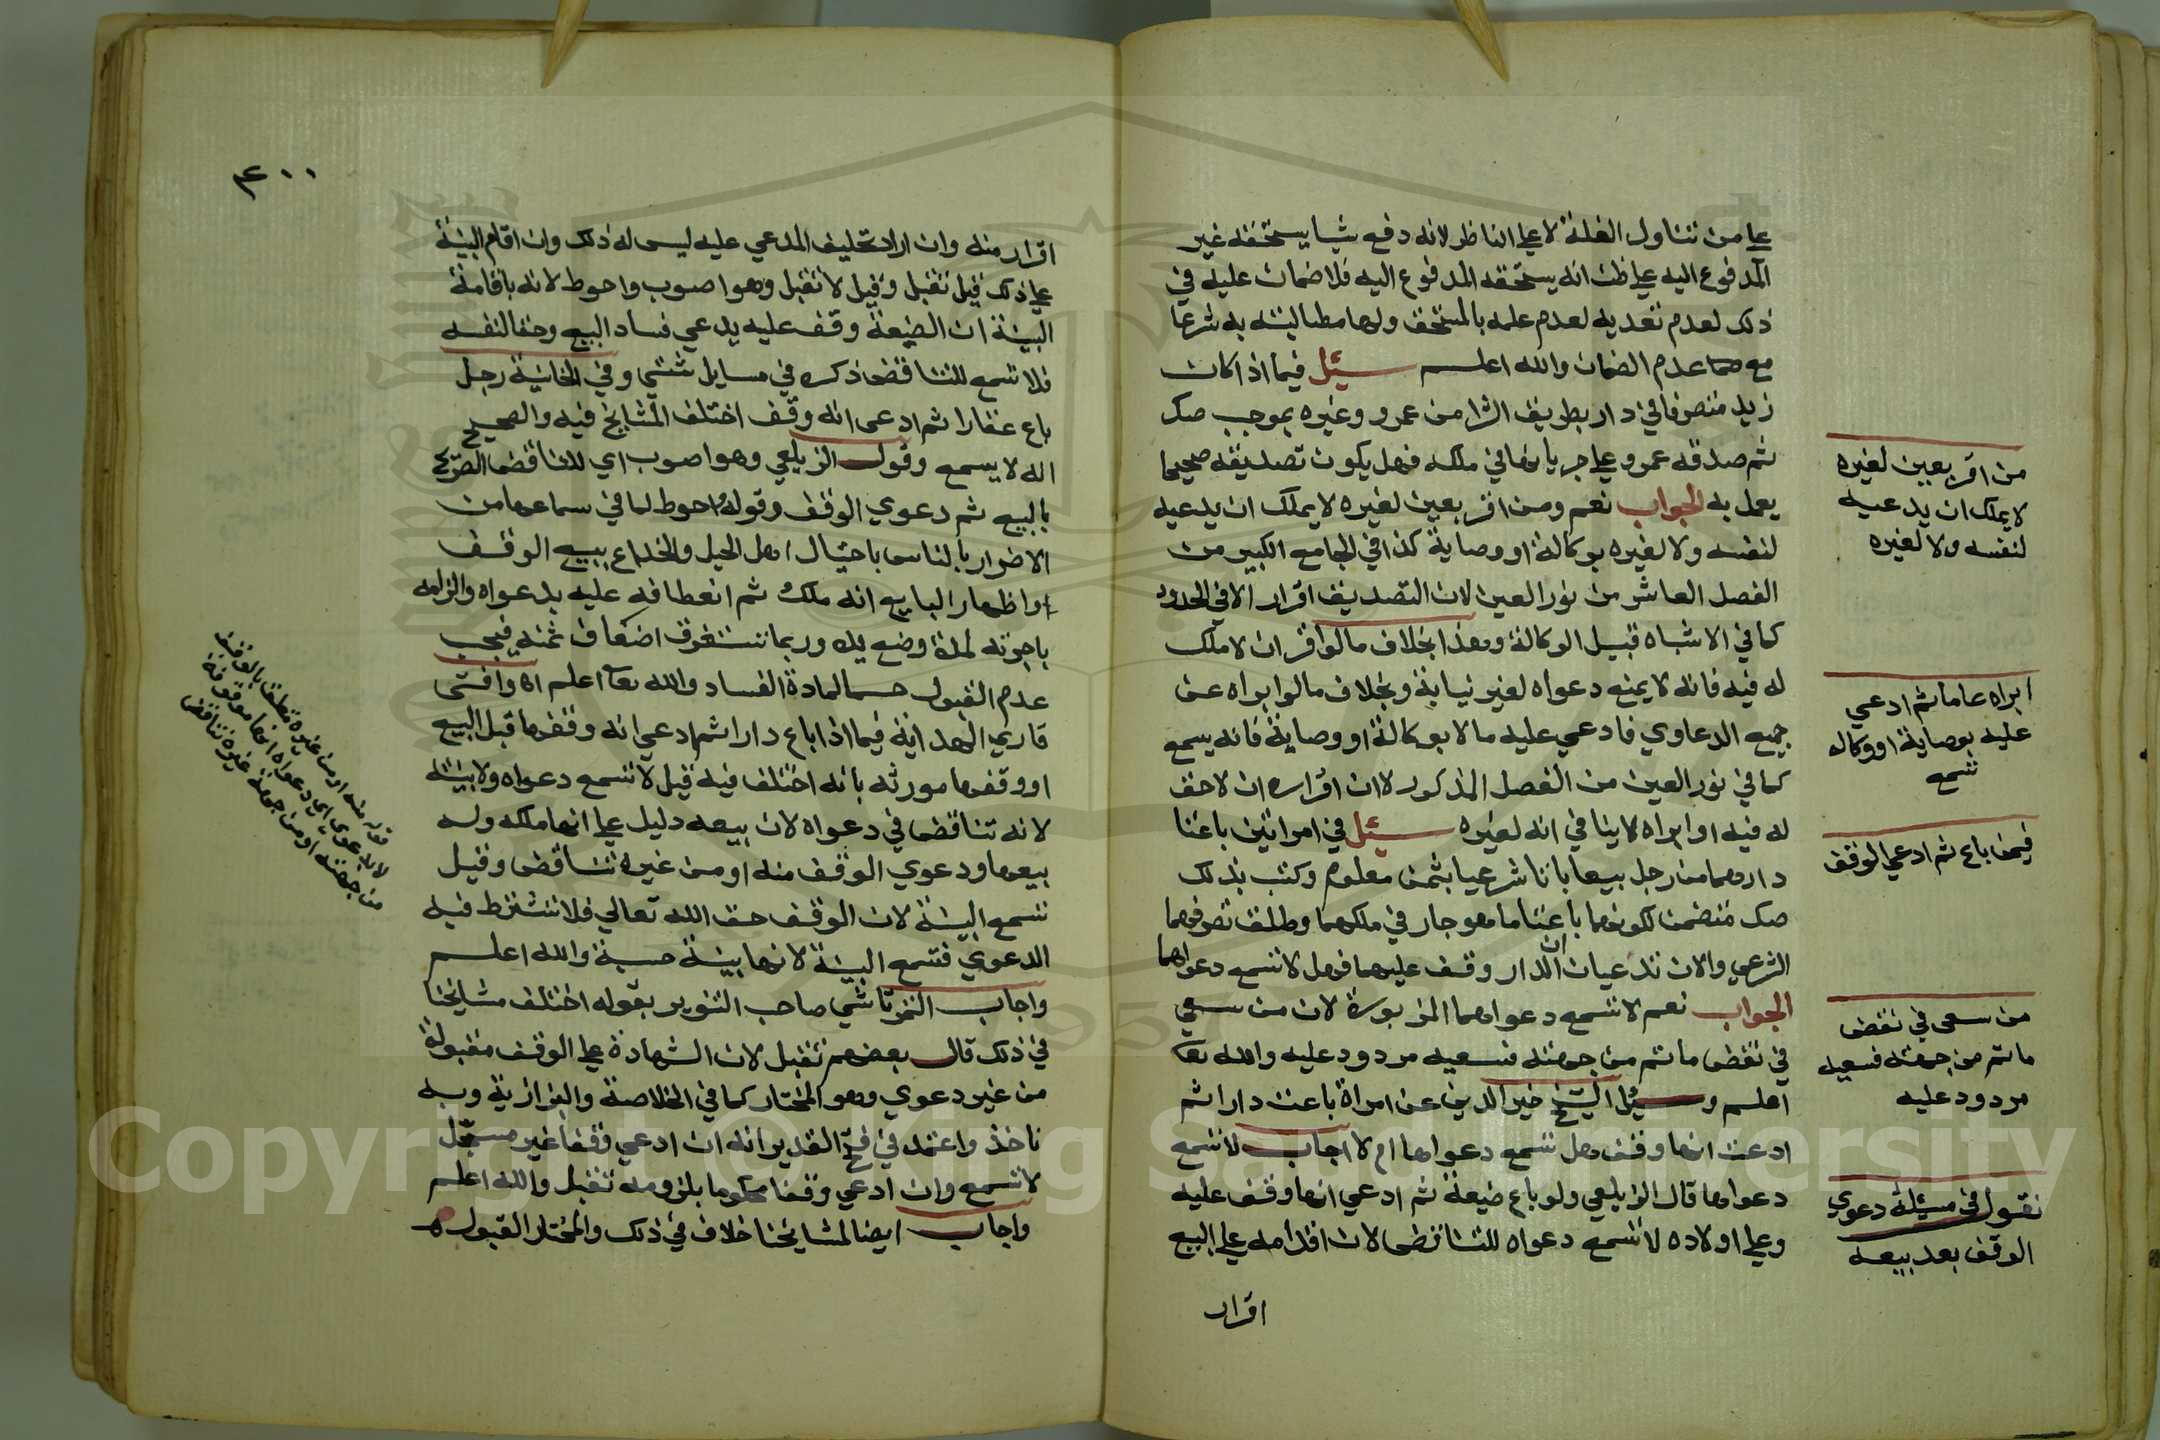 على من تناول الغلة لا على الناظر لانه دفع شيا يستحقه غير
المدفوع اليه على ظن انه يستحقه المدفوع اليه فلا ضمان عليه في
ذلك لعدم تعديه لعدم علمه بالمستحق ولها مطالبته به شرعا
مع عدم الضمان والله اعلم سئل فيما اذا كان
زيد متصرفا في دار بطريق الشرا من عمرو وغيره بموجب صك
ثم صدقه عمرو على جريانها في ملكه فهل يكون تصديقه صحيحا
يعمل به الجواب نعم ومن اقر بعين لغيره لا يملك ان يدعيه
لنفسه ولا لغيره بوكالة او وصاية كذا في الجامع الكبير من
الفصل العاشر من نور العين لان التصديق اقرار الا في الحدود
كما في الاشباه قبيل الوكالة وهذا بخلاف ما لو اقر ان لا ملك
له فيه فانه لا يمنع دعواه لغير نيابة وبخلاف ما لو ابراه عن
جميع الدعاوي فادعي عليه مالا بوكالة او وصاية فانه يسمع
كما في نور العين من الفصل المذكور لان اقراره ان لا حق
له فيه او ابراه لا ينافي انه لغيره سئل في امراتين باعتا
دارهما من رجل بيعا باتا شرعيا بثمن معلوم وكتب بذلك
صك متضمن لكونهما باعتا ما هو جار في ملكهما وطلق تصرفهما
الشرعي والان تدعيان ان الدار وقف عليهما فهل لا تسمع دعواهما
الجواب نعم لا تسمع دعواهما المزبورة لان من سعي
في نقض ما تم من جهته فسعيه مردود عليه والله تعا
اعلم وسئل الشيخ خير الدين عن امراة باعت دارا ثم
ادعت انها وقف هل تسمع دعواها ام لا اجاب لا تسمع
دعواها قال الزيلعي ولو باع ضيعة ثم ادعي انها وقف عليه
وعلى اولاده لا تسمع دعواه للتناقض لان اقدامه على البيع
اقرار
من اقر بعين لغيره
لا يملك ان يدعيه
لنفسه ولا لغيره
ابراه عاما ثم ادعي
عليه بوصاية او وكاله
تسمع
فيمن باع ثم ادعي الوقف
من سعى في نقض
ما تم من جهته فسعيه
مردود عليه
نقول في مسئلة دعوي
الوقف بعد بيعه
٤٠٠
اقرار منه وان اراد تحليف المدعي عليه ليس له ذلك وان اقام البينة
على ذلك قيل تقبل وقيل لا تقبل وهو اصوب واحوط لانه باقامة
البينة ان الضيعة وقف عليه يدعي فساد البيع وحقا لنفسه
فلا تسمع للتناقض ذكره في مسايل شتى وفي الخانية رجل
باع عقارا ثم ادعى انه وقف اختلف المشايخ فيه والصحيح
انه لا يسمع وقول الزيلعي وهو اصوب اي للتناقض الصريح
بالبيع ثم دعوي الوقف وقوله احوط لما في سماعها من
الاضرار بالناس باحتيال اهل الحيل والخداع ببيع الوقف
واظهار البايع انه ملك ثم انعطافه عليه بدعواه والزامه
باجرته لمدة وضع يده وربما تستغرق اضعاف ثمنه فيجب
عدم القبول حسما لمادة الفساد والله تعا اعلم اه وافتى
قاري الهداية فيما اذا باع دارا ثم ادعي انه وقفها قبل البيع
او وقفها مورثه بانه اختلف فيه قيل لا تسمع دعواه ولا بينته
لانه تناقضا في دعواه لان بيعه دليل على انها ملكه وله
بيعها ودعوي الوقف منه او من غيره تناقض وقيل
تسمع البينة لان الوقف حق الله تعالي فلا تشترط فيه
الدعوي فتسمع البينة لانها بينة حسبة والله اعلم
واجاب التمرتاشي صاحب التنوير بقوله اختلف مشايخنا
في ذلك قال بعضهم تقبل لان الشهادة على الوقف مقبولة
من غير دعوي وهو المختار كما في الخلاصة والبزازية وبه
ناخذ واعتمد في فتح القدير انه ان ادعي وقفا غير مسجل
لا تسمع وان ادعي وقفا محكوما بلزومه تقبل والله اعلم
واجاب ايضا لمشايخنا خلاف في ذلك والمختار القبول
قوله منه او من غيره متعلق بالوقف
لا بدعوي اي دعواه انها موقوفة
من جهته او من جهة غيره تناقض
Copyright © King Saud University
1957